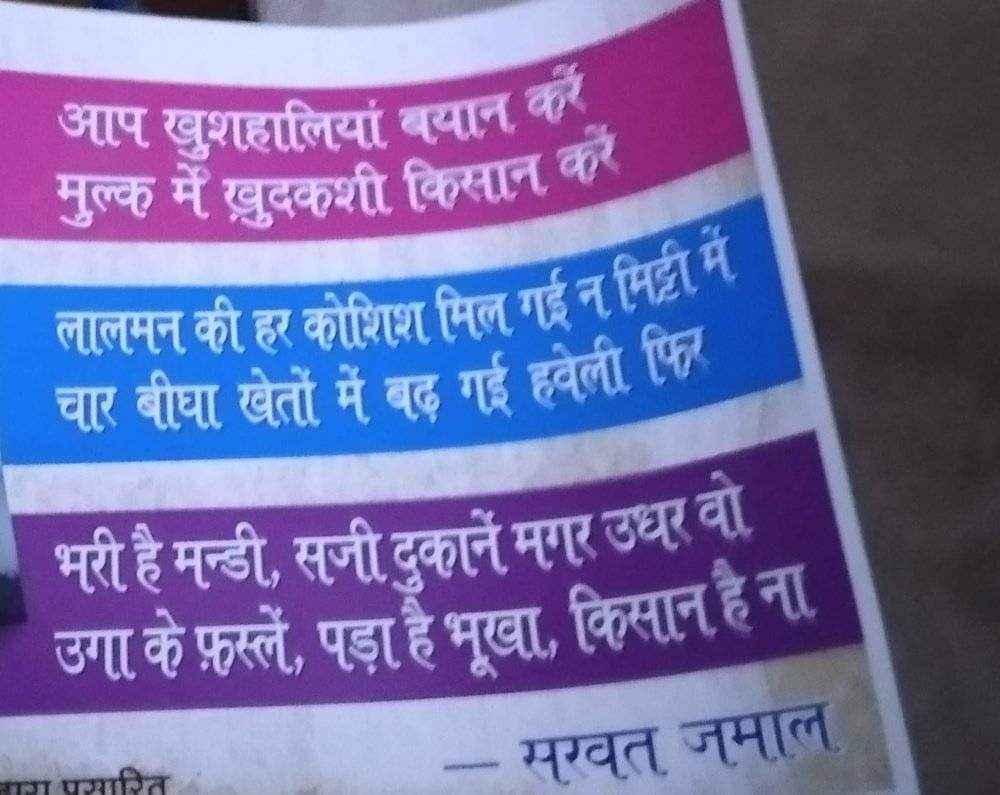 आप खुशहालियां बयान करें
मुल्क में ख़ुदकशी किसान करें
लालमन की हर कोशिश मिल गई न मिट्टी में
चार बीघा खेतों में बढ़ गई हवेली फिर
भरी है मन्डी, सजी दुकानें मगर उधर वो
उगा के फ़स्लें, पड़ा है भूखा, किसान है ना
— सरवत जमाल
प्रसारित